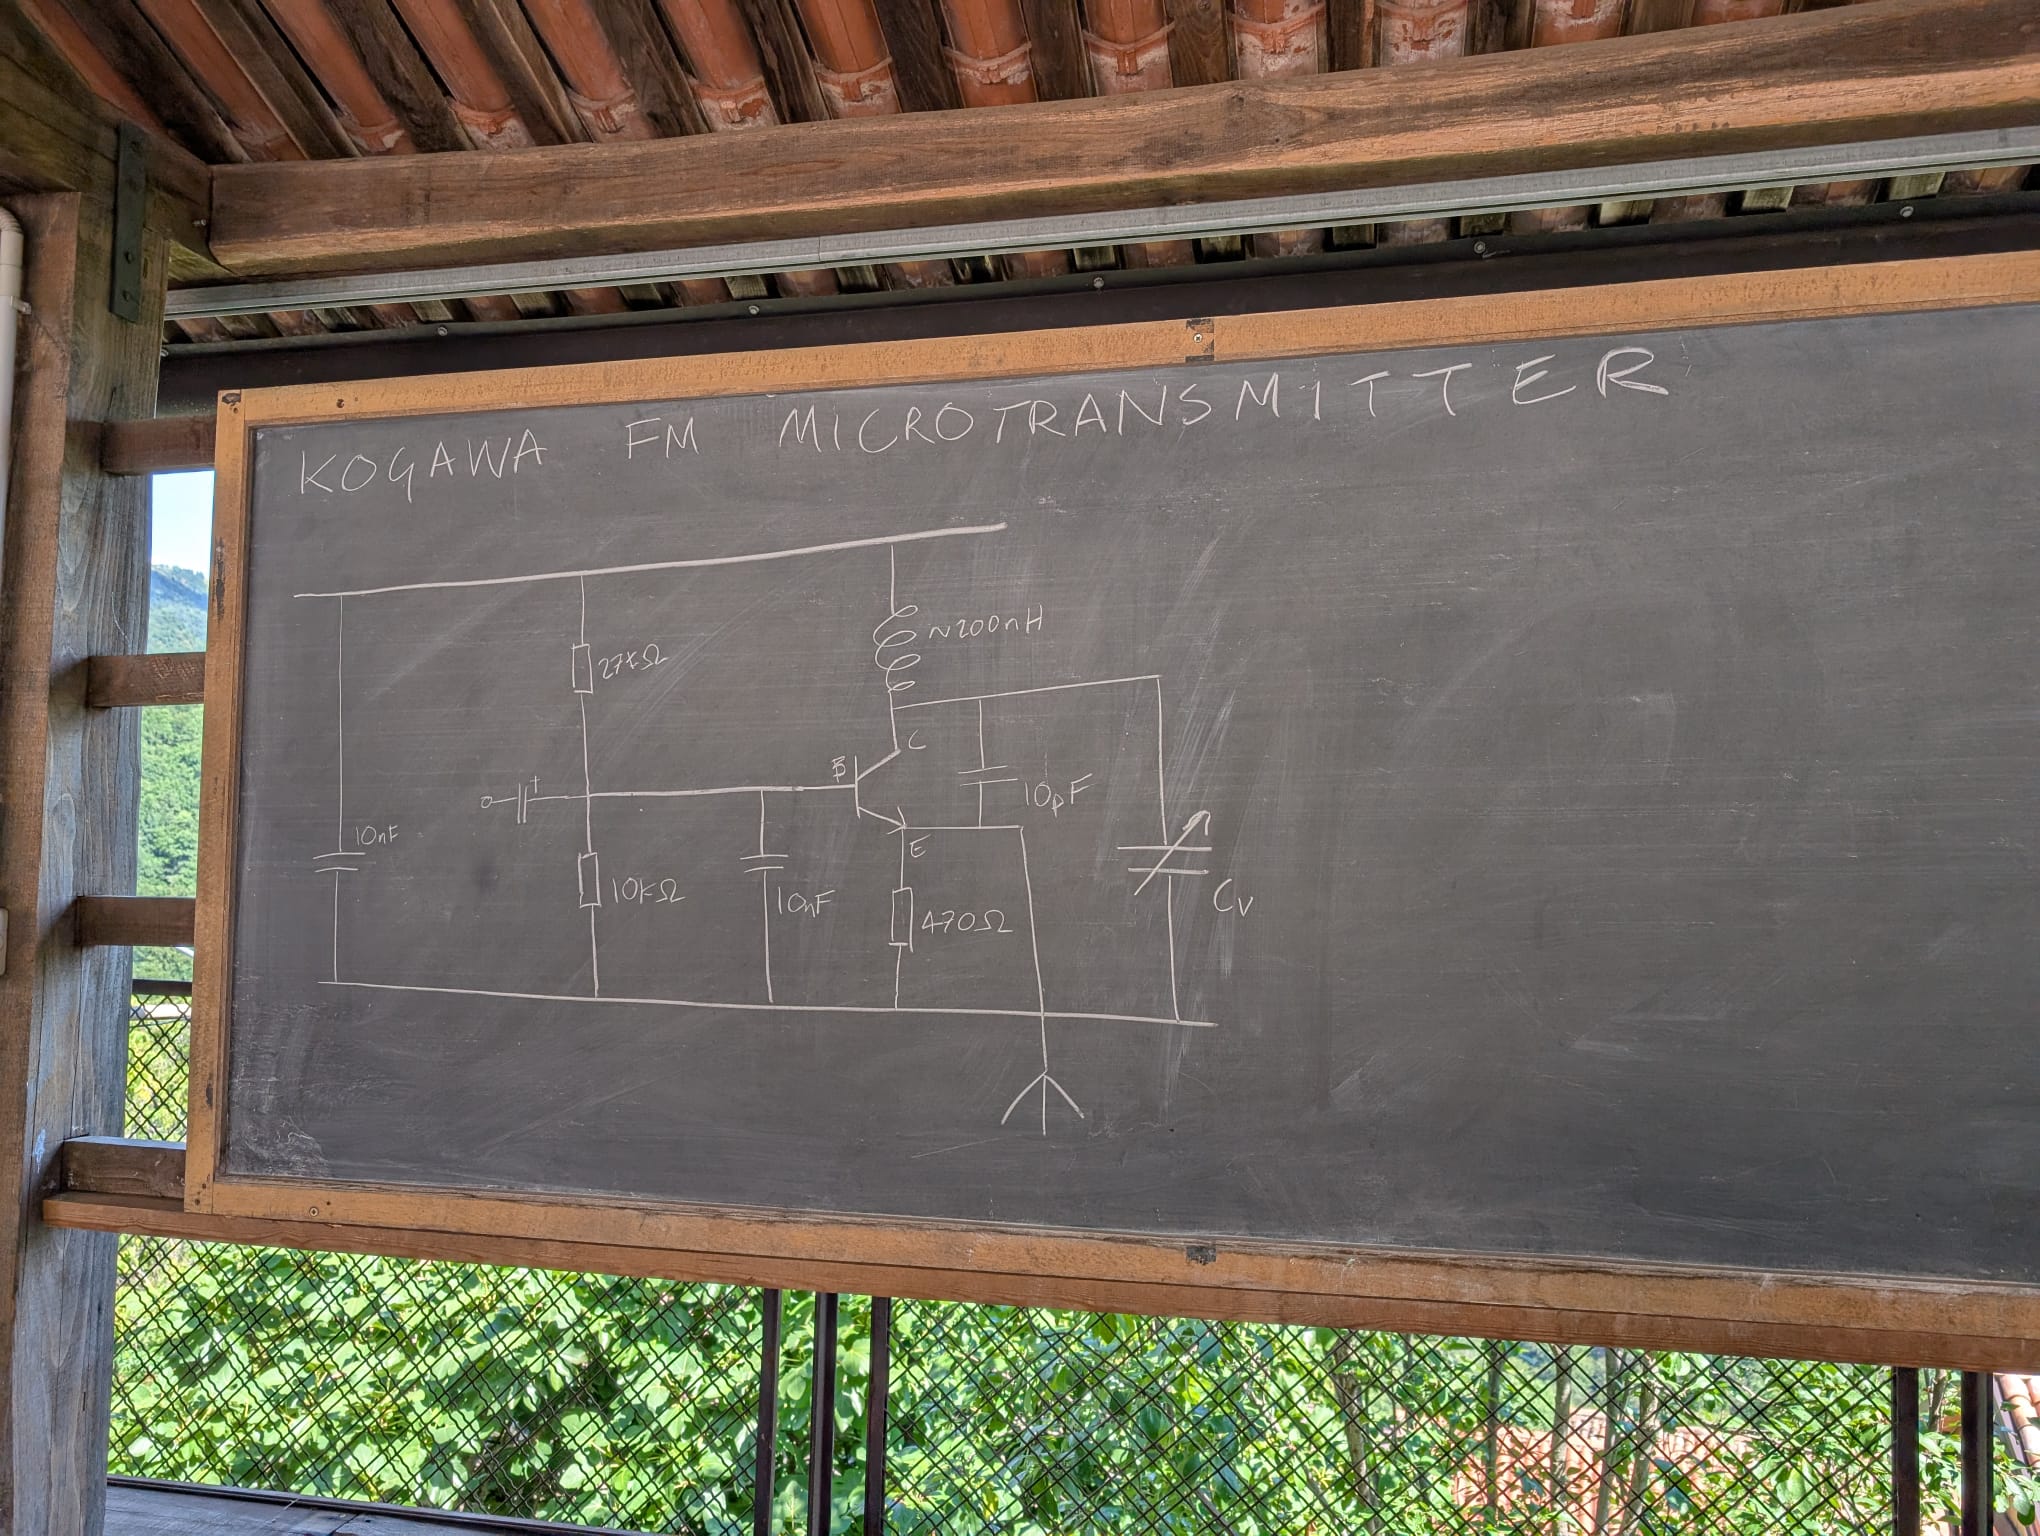 KOGAWA FM MICROTRANSMITTER
~200nH
27kΩ
C
B
+
10pF
10nF
E
10kΩ
10nF
470Ω
Cv